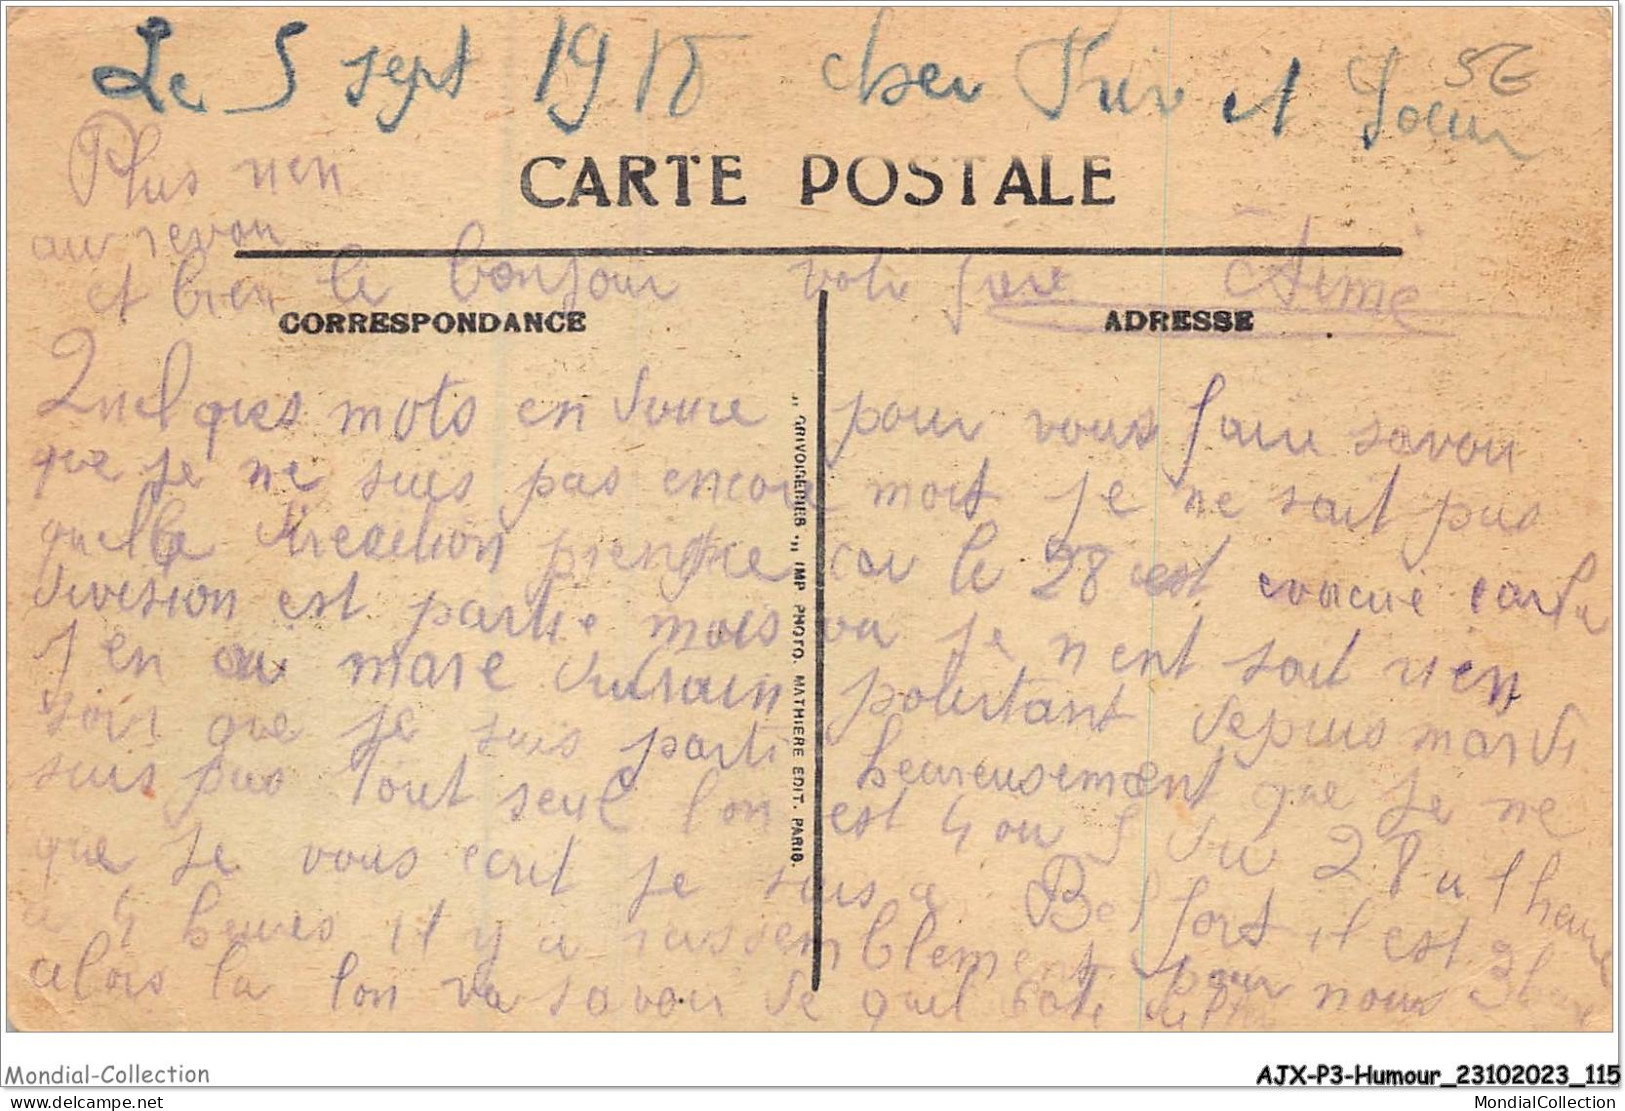 Le 5 sept 19 cher Frer et Soeur
5€
Plus rien
au revoir
CARTE POSTALE
et bien le bonjour votr frere Aimé
CORRESPONDANCE
ADRESSE
Quelques mots en pour vous faire savoir
que je ne suis pas encore mort je ne sait pas
quelle direction prendre car le 28 est evacué car la
division est partie mois ou je n ent sait rien
j en ai mare pourtant depuis mardi
soir que je suis parti heureusement que je ne
suis pas tout seul l on est 4 ou 5 du 28 a l heure
que je vous ecrit je suis a Belfort il est 3 h
a 4 heures il y a rassemblement pour nous
alors la l on va savoir de quel coté
" GRIVOISERIES " IMP PHOTO. MATHIERE EDIT. PARIS.
Mondial-Collection
AJX-P3-Humour_23102023_115
delcampe.net
MondialCollection